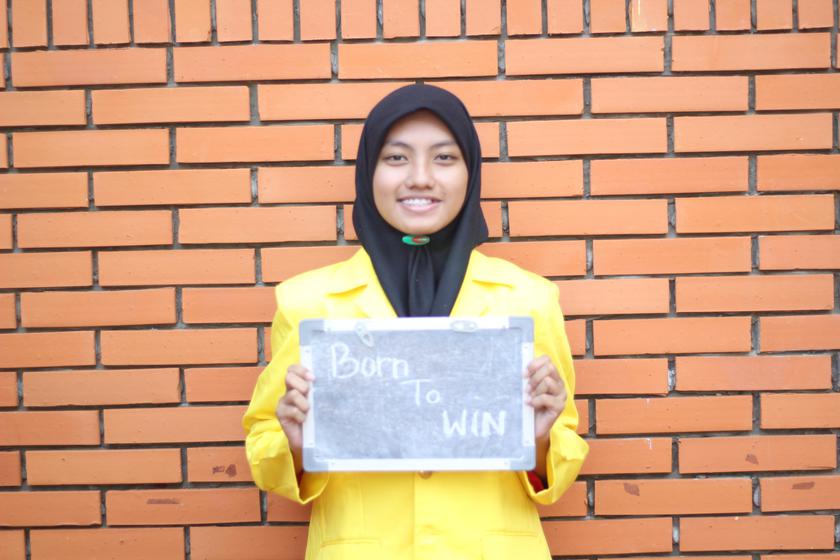 Born
To
WIN